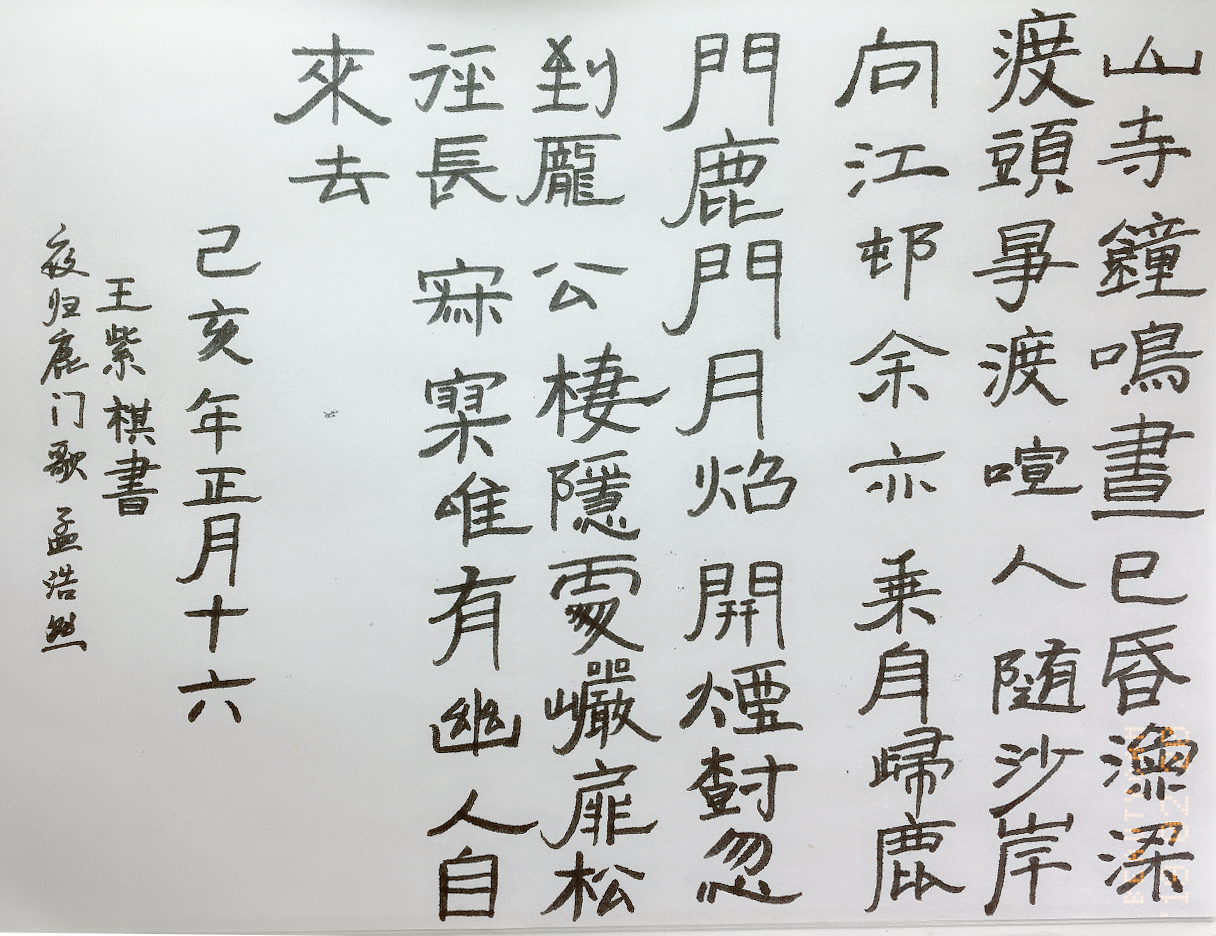 山寺鐘鳴晝已昏漁深
渡頭爭渡喧人隨沙岸
向江邨余亦乗自歸鹿
門鹿門月焰開煙尌忽
到龐公棲隱處巖扉松
徑長寂寞唯有幽人自
來去
己亥年正月十六
王紫棋書
夜归鹿门歌 孟浩然